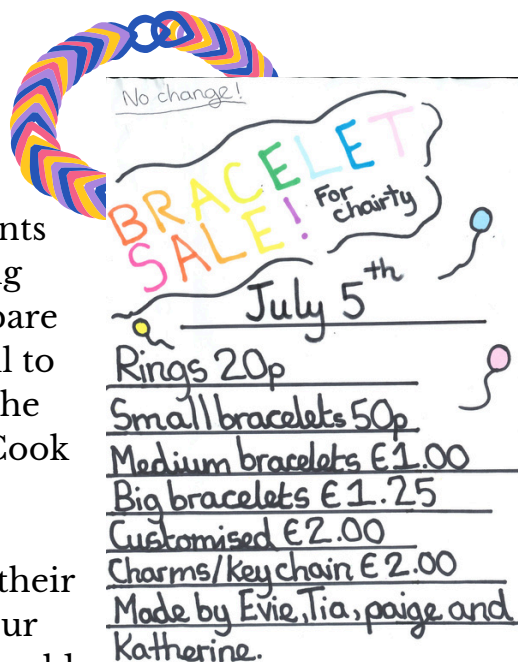 nts
g
pare
l to
he
Cook
their
ur
No change!
BRACELET
SALE! For
chairty
July 5th
Rings 20p
Small bracelets 50p
Medium bracelets €1.00
Big bracelets €1.25
Customised €2.00
Charms/keychain €2.00
Made by Evie, Tia, paige and
Katherine.